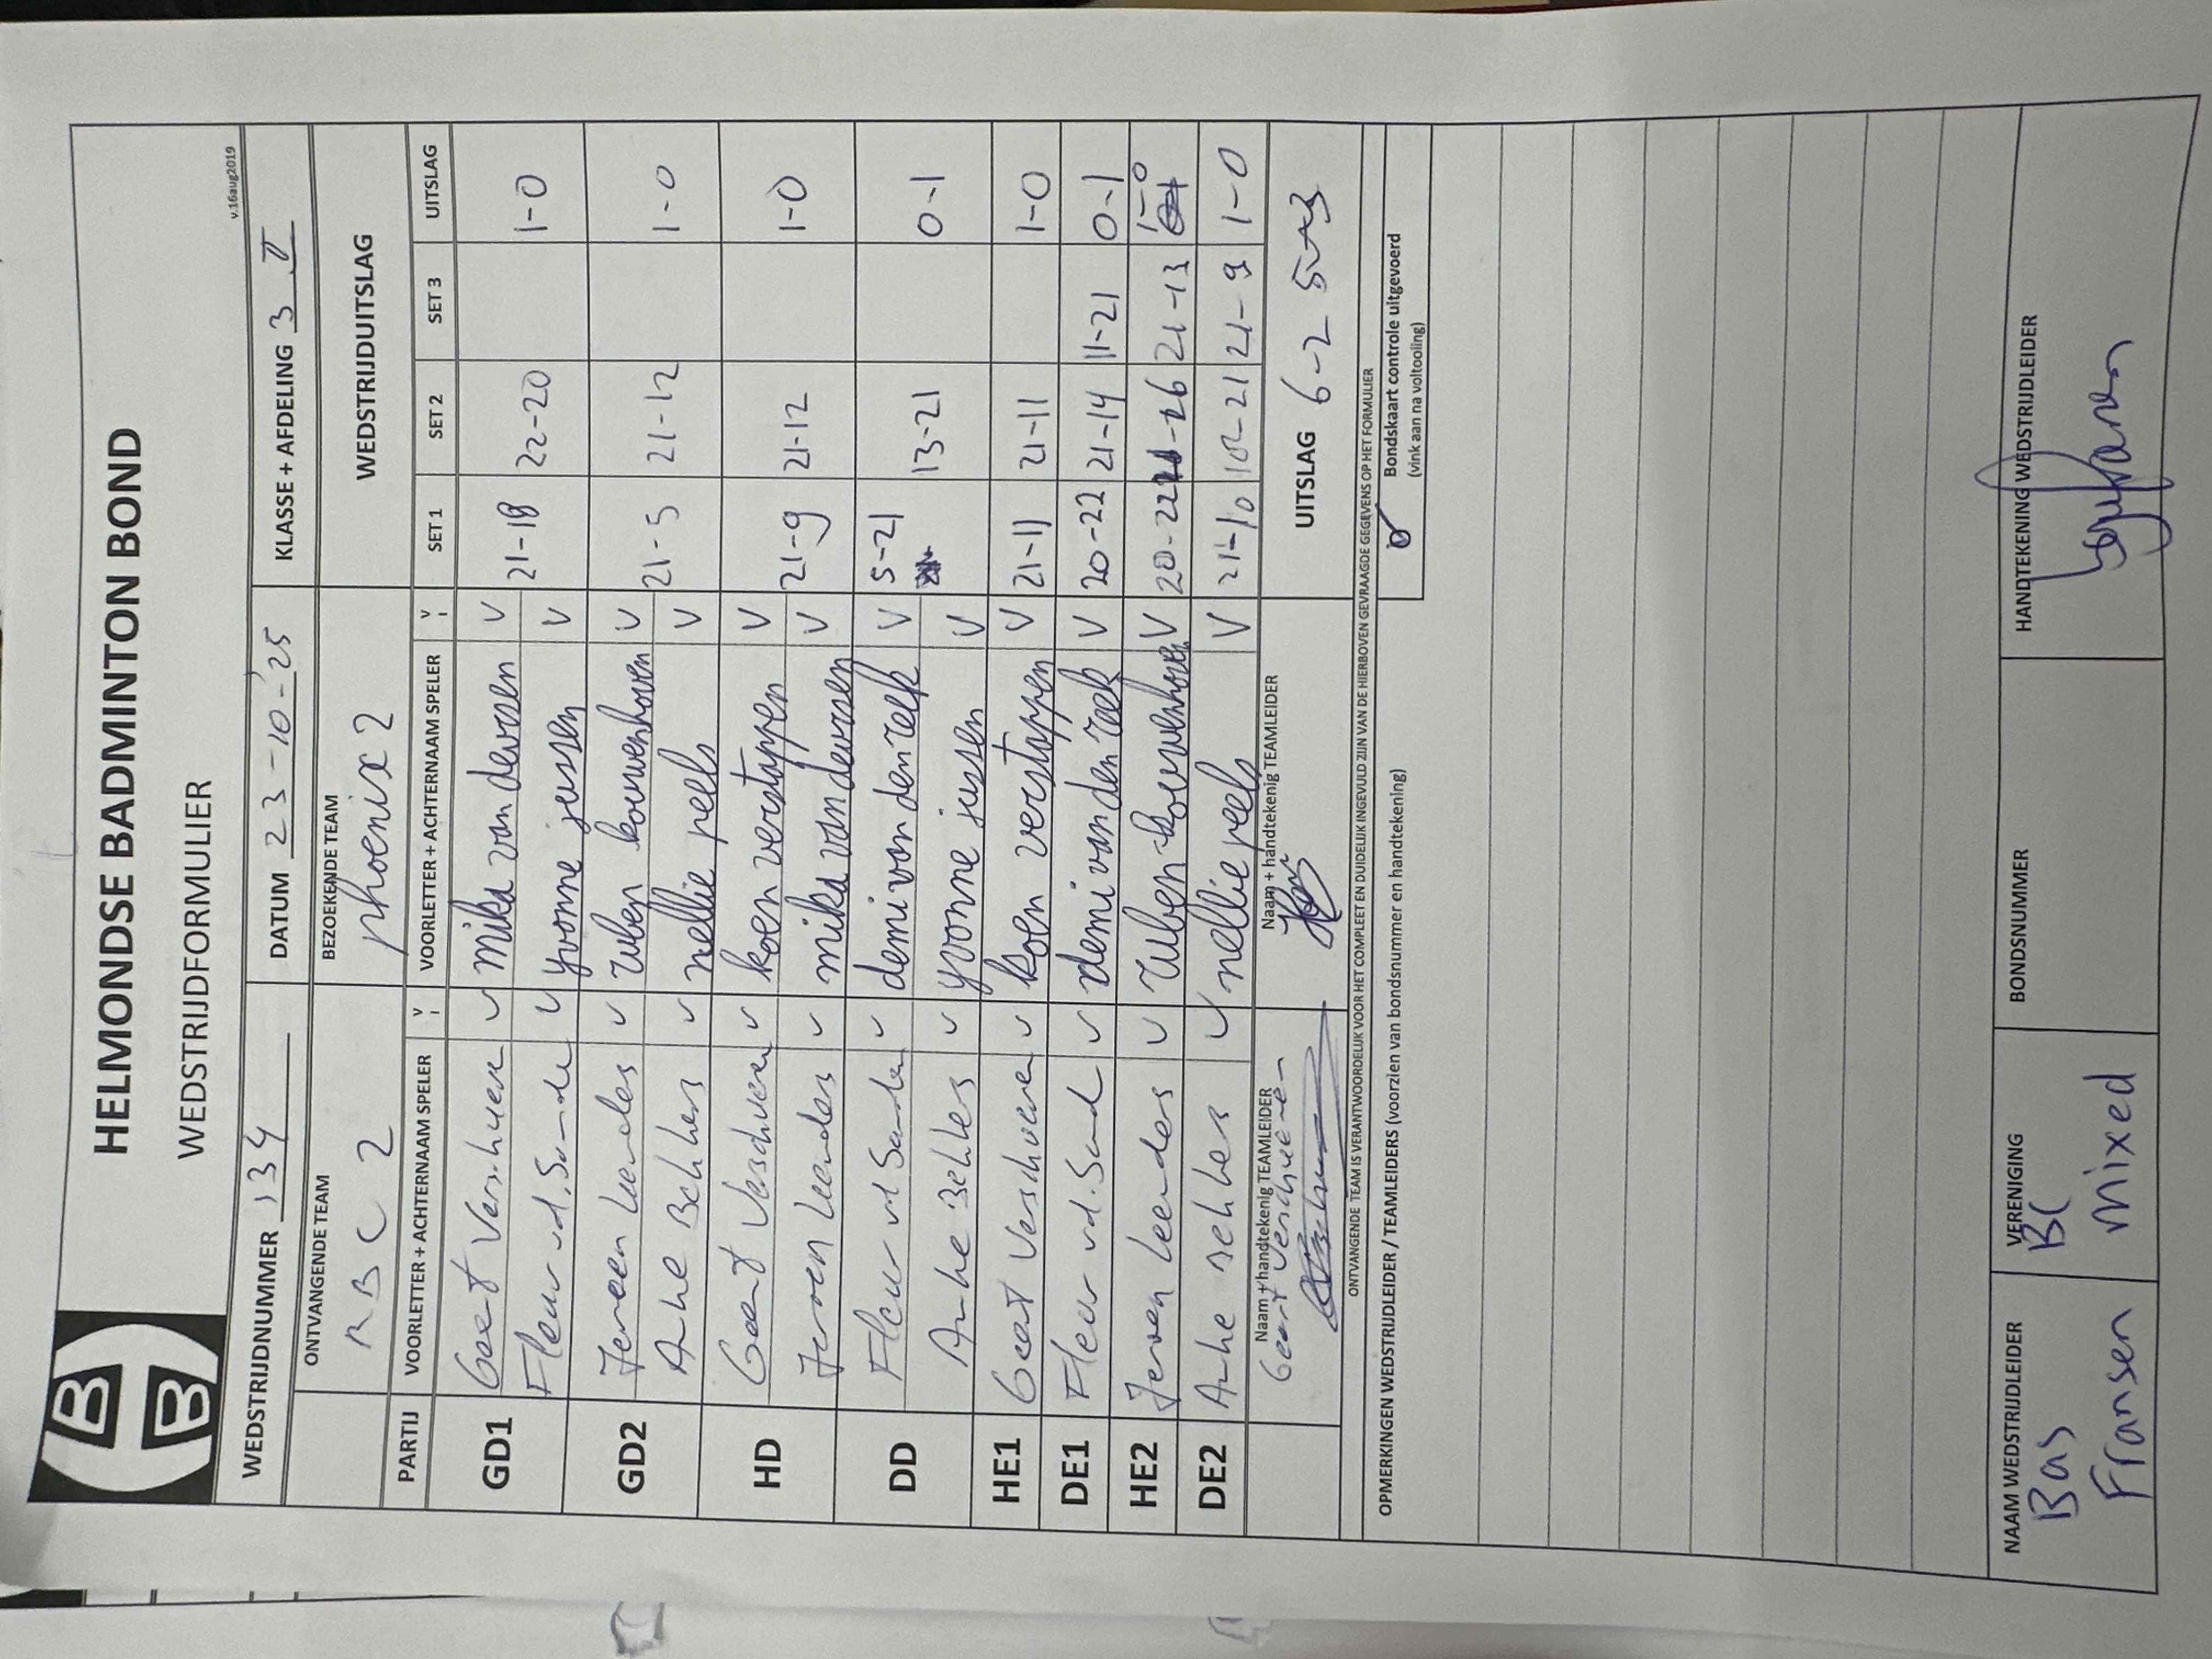 HELMONDSE BADMINTON BOND
WEDSTRIJDFORMULIER
v.16aug2019
WEDSTRIJDNUMMER 134 DATUM 23-10-'25 KLASSE + AFDELING 3 II
ONTVANGENDE TEAM BEZOEKENDE TEAM WEDSTRIJDUITSLAG
RBC 2 phoenix 2
PARTIJ VOORLETTER + ACHTERNAAM SPELER V VOORLETTER + ACHTERNAAM SPELER V SET 1 SET 2 SET 3 UITSLAG
GD1 Geert Verschueren v mika van deursen v 21-18 22-20 1-0
Fleur v.d. Sande v yvonne jussen v
GD2 Jeroen Leenders v ruben kouwenhoven v 21-5 21-12 1-0
Anke Bekkers v nellie peels v
HD Geert Verschueren v koen verstappen v 21-9 21-12 1-0
Jeroen Leenders v mika van deursen v
DD Fleur vd Sande v demi van den v 5-21 13-21 0-1
Anke Bekkers v yvonne jussen v
HE1 Geert Verschueren v koen verstappen v 21-11 21-11 1-0
DE1 Fleur vd. Sand v demi van den v 20-22 21-14 11-21 0-1
HE2 Jeroen Leenders v ruben kouwenhoven v 20-22 21-13 1-0
DE2 Anke Bekkers v nellie peels v 21-10 10-21 21-9 1-0
Naam + handtekenig TEAMLEIDER Naam + handtekenig TEAMLEIDER UITSLAG 6-2
Geert Verschueren
ONTVANGENDE TEAM IS VERANTWOORDELIJK VOOR HET COMPLEET EN DUIDELIJK INGEVULD ZIJN VAN DE HIERBOVEN GEVRAAGDE GEGEVENS OP HET FORMULIER
OPMERKINGEN WEDSTRIJDLEIDER / TEAMLEIDERS (voorzien van bondsnummer en handtekening)
Bondskaart controle uitgevoerd
(vink aan na voltooling)
NAAM WEDSTRIJDLEIDER VERENIGING BONDSNUMMER HANDTEKENING WEDSTRIJDLEIDER
Bas BC
Fransen mixed